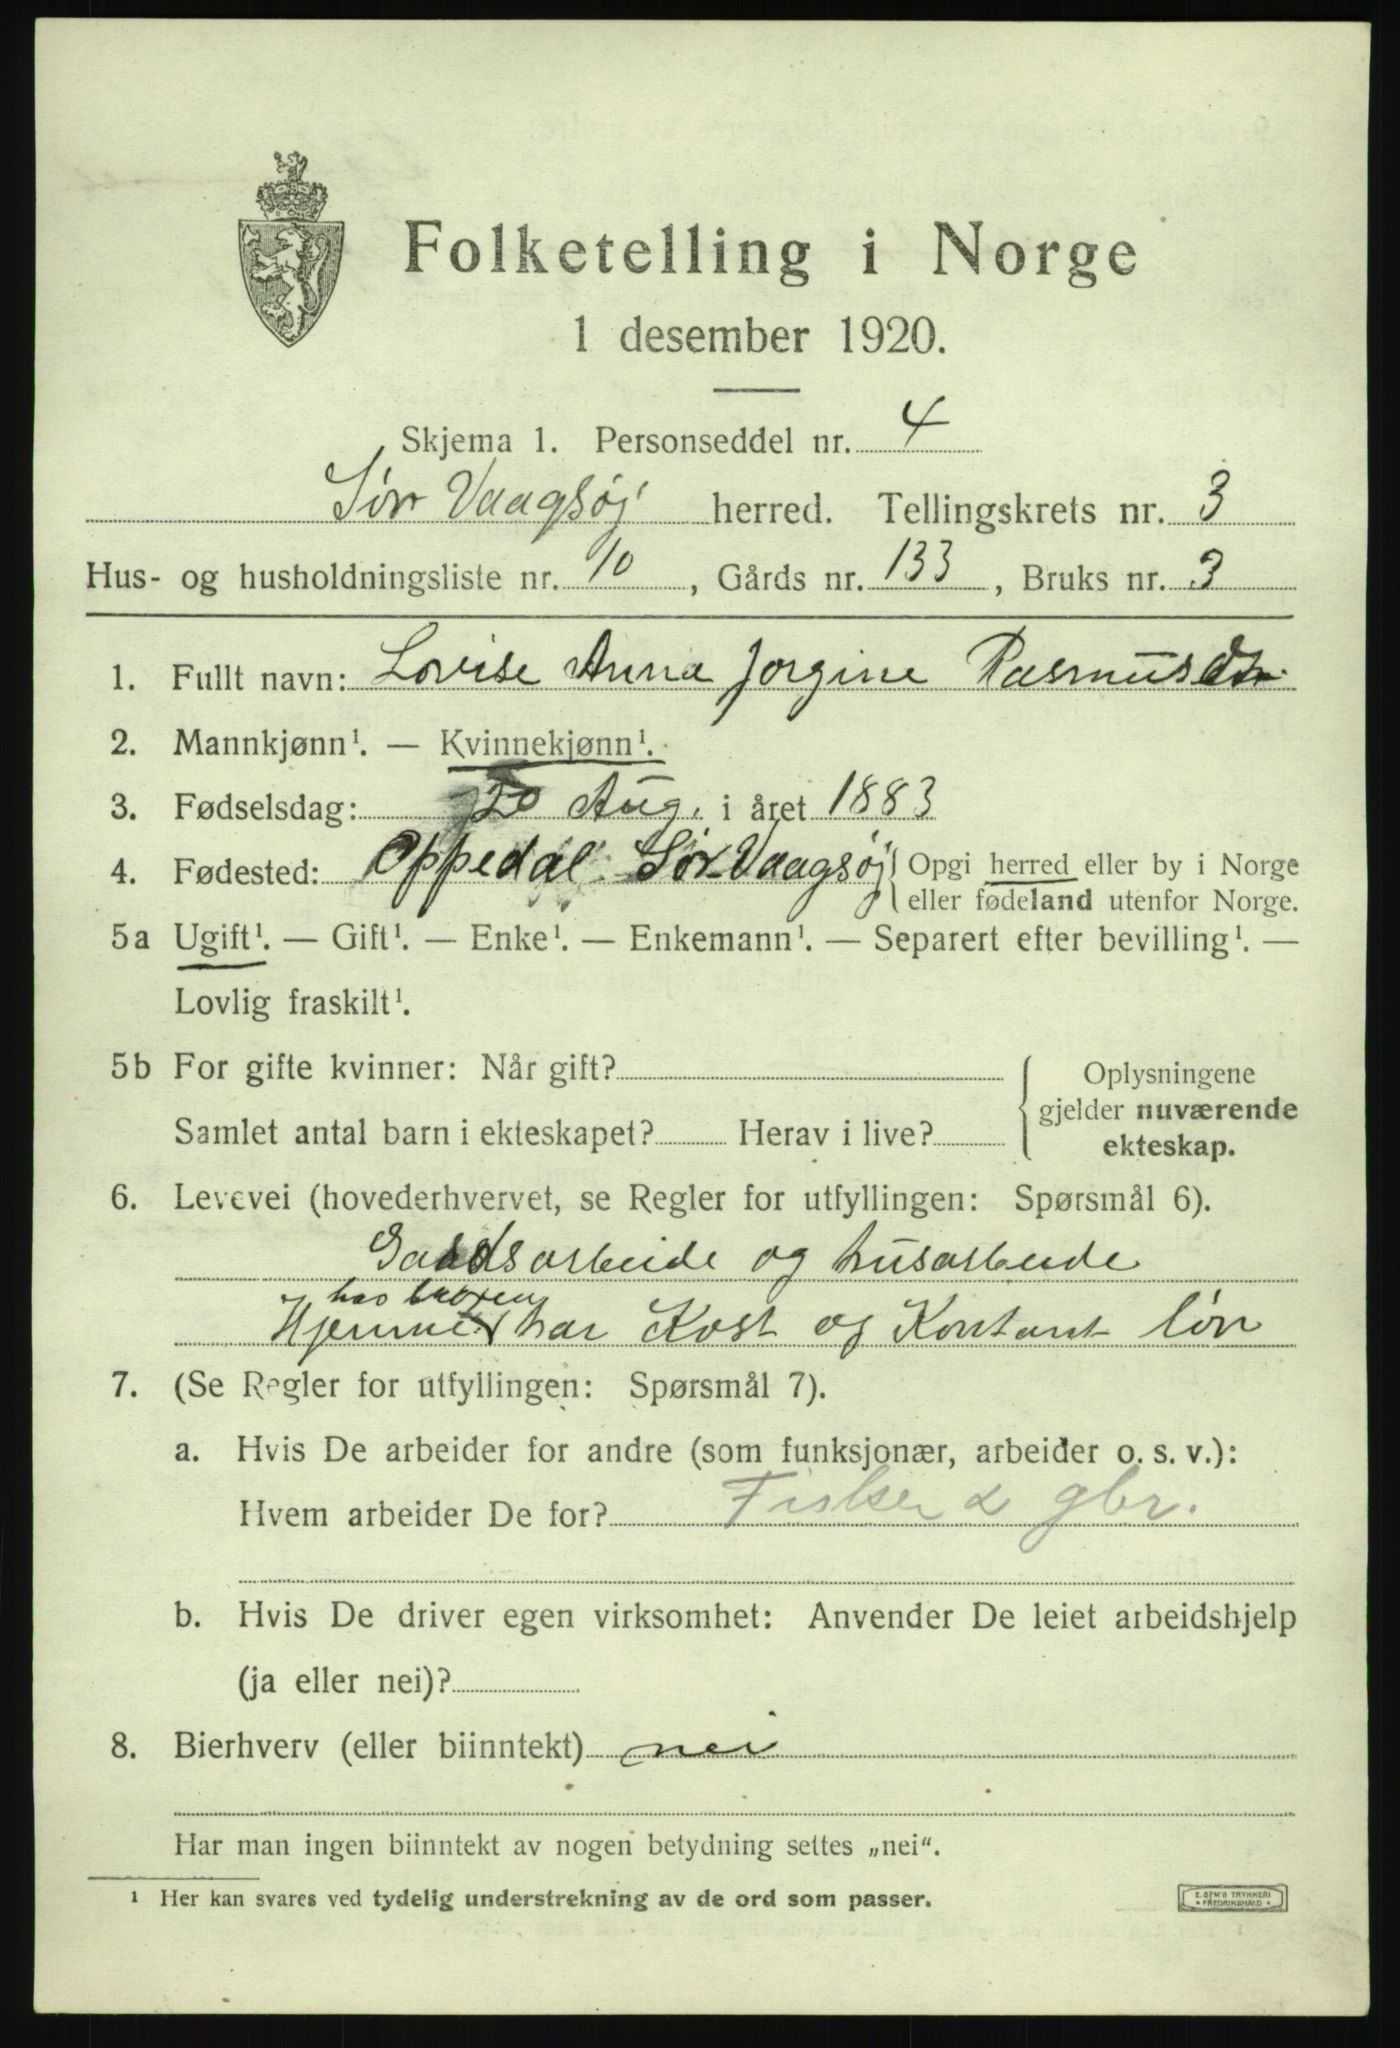 Folketelling i Norge
1 desember 1920.
Skjema 1. Personseddel nr. 4
Sør Vaagsøj herred. Tellingskrets nr. 3
Hus- og husholdningsliste nr. 10, Gårds nr. 133, Bruks nr. 3
1. Fullt navn: Lovise Anna Jorgine Rasmusdtr.
2. Mannkjønn¹. — Kvinnekjønn¹.
3. Fødselsdag: 20 Aug. i året 1883
4. Fødested: Oppedal Sør Vaagsøj { Opgi herred eller by i Norge
eller fødeland utenfor Norge.
5a Ugift¹. — Gift¹. — Enke¹. — Enkemann¹. — Separert efter bevilling¹. —
Lovlig fraskilt¹.
5b For gifte kvinner: Når gift?
Samlet antal barn i ekteskapet? Herav i live?
Oplysningene
gjelder nuværende
ekteskap.
6. Levevei (hovederhvervet, se Regler for utfyllingen: Spørsmål 6).
Gaardsarbeide og husarbeide
hos
Hjemme har Kost og Kontant løn
7. (Se Regler for utfyllingen: Spørsmål 7).
a. Hvis De arbeider for andre (som funksjonær, arbeider o. s. v.):
Hvem arbeider De for? Fisker & gbr.
b. Hvis De driver egen virksomhet: Anvender De leiet arbeidshjelp
(ja eller nei)?
8. Bierhverv (eller biinntekt) nei
Har man ingen biinntekt av nogen betydning settes „nei“.
¹ Her kan svares ved tydelig understrekning av de ord som passer.
E. SEM'S TRYKKERI
• FREDRIKSHALD •